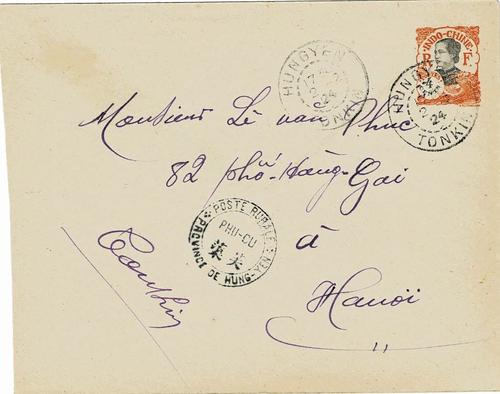 INDO-CHINE
R F
HUNGYEN
TONKIN
HUNGYEN
24
TONKIN
Monsieur Lê van Phuc
82 phố-Hàng-Gai
à
Hanoï
POSTE RURALE
PHU-CU
PROVINCE DE HUNG-YEN